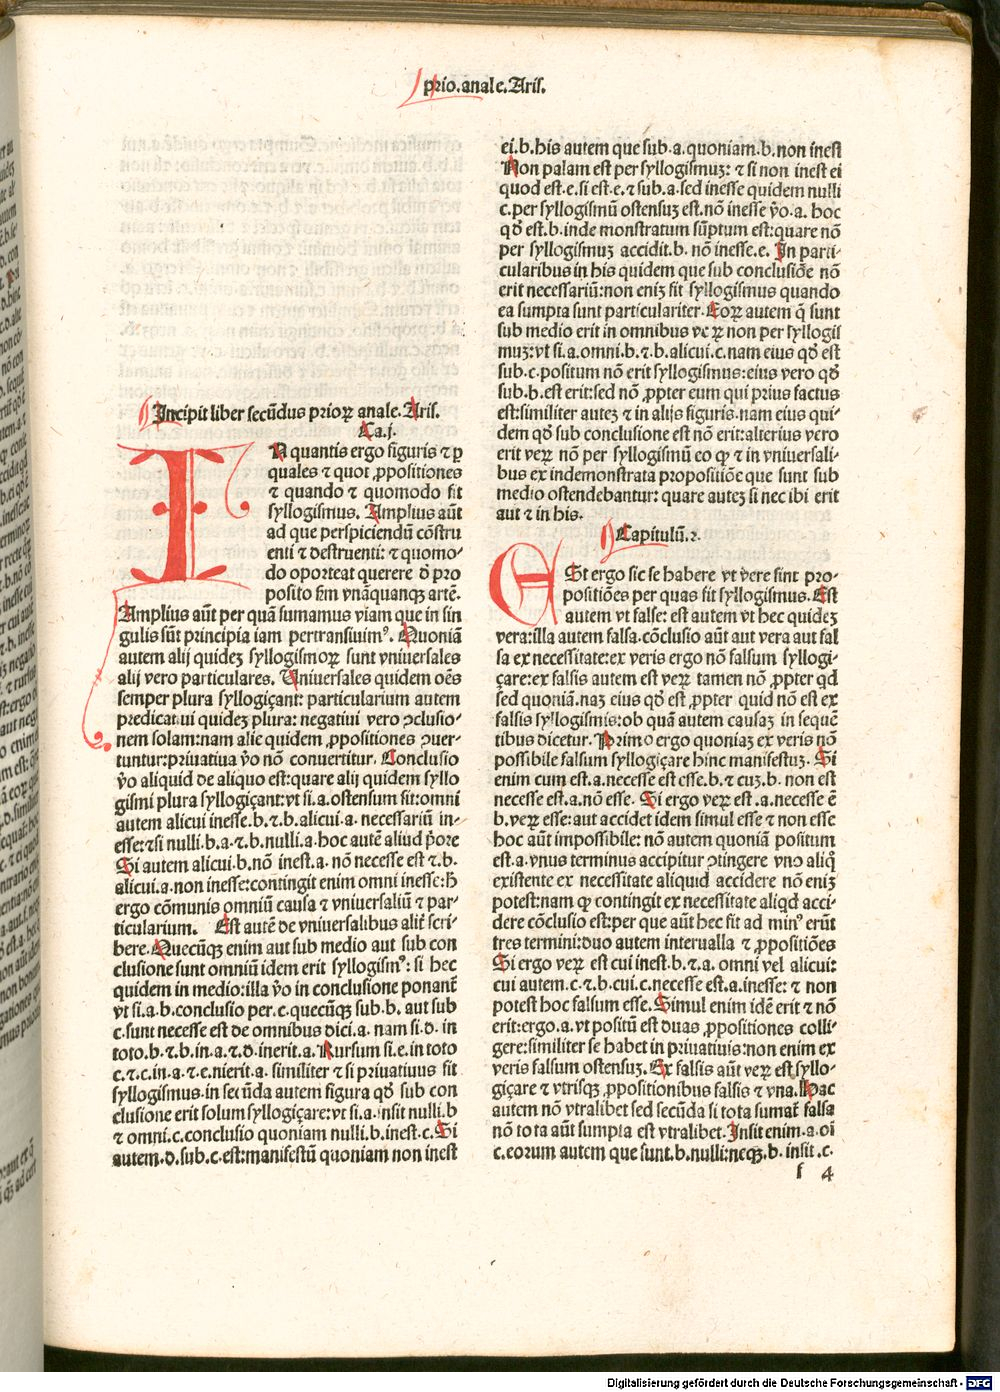 prio.anale.Aris.
Incipit liber secūdus prioꝝ anale.Aris.
Ca.j.
IN quantis ergo figuris ⁊ ꝑ
quales ⁊ quot ꝓpositiones
⁊ quando ⁊ quomodo fit
syllogismus. Amplius aūt
ad que perspiciendū cōstru
enti ⁊ destruenti: ⁊ quomo-
do oporteat querere ō pro
posito fm vnāquanqꝫ artē.
Amplius aūt per quā sumamus viam que in sin
gulis sūt principia iam pertransiuimꝰ. Quoniā
autem alij quideꝫ syllogismoꝝ sunt vniuersales
alij vero particulares. Uniuersales quidem oēs
semper plura syllogiçant: particularium autem
predicatiui quideꝫ plura: negatiui vero ꝯclusio-
nem solam: nam alie quidem ꝓpositiones ꝯuer-
tuntur:priuatiua v̄o nō conuertitur. Conclusio
v̄o aliquid de aliquo est:quare alij quidem syllo
gismi plura syllogiçant:vt si.a.ostensum sit:omni
autem alicui inesse.b.⁊.b.alicui.a. necessariū in-
esse:⁊si nulli.b.a.⁊.b.nulli.a.hoc autē aliud p̄ore
Si autem alicui.b.nō inest.a. nō necesse est ⁊.b.
alicui.a.non inesse:contingit enim omni inesse:ħ
ergo cōmunis omniū causa ⁊ vniuersaliū ⁊ par-
ticularium. Est autē de vniuersalibus alit̄ scri-
bere.Quecūqꝫ enim aut sub medio aut sub con
clusione sunt omniū idem erit syllogismꝰ: si hec
quidem in medio:illa v̄o in conclusione ponant̄
vt si.a.b.conclusio per.c.quecūqꝫ sub.b. aut sub
c.sunt necesse est de omnibus dici.a. nam si.d. in
toto.b.⁊.b.in.a.⁊.d.inerit.a.Rursum si.e.in toto
c.⁊.c.in.a.⁊.e.nierit.a. similiter ⁊ si priuatiuus fit
syllogismus.in secūda autem figura qð sub con
clusione erit solum syllogiçare:vt si.a.insit nulli.b
⁊ omni.c.conclusio quoniam nulli.b.inest.c.Si
autem.d.sub.c.est:manifestū quoniam non inest
ei.b.his autem que sub.a.quoniam.b.non inest
Non palam est per syllogismuꝫ: ⁊ si non inest ei
quod est.e.si est.e.⁊ sub.a.sed inesse quidem nulli
c.per syllogismū ostensuꝫ est.nō inesse v̄o.a. hoc
qð est.b.inde monstratum sūptum est:quare nō
per syllogismuꝫ accidit.b. nō inesse.e. In parti-
cularibus in his quidem que sub conclusiōe nō
erit necessariū:non eniꝫ fit syllogismus quando
ea sumpta sunt particulariter.Eoꝝ autem q̄ sunt
sub medio erit in omnibus veꝝ non per syllogis
muꝫ:vt si.a.omni.b.⁊.b.alicui.c.nam eius qð est
sub.c.positum nō erit syllogismus:eius vero qð
sub.b.est erit:sed nō ꝓpter eum qui prius factus
est:similiter auteꝫ ⁊ in alijs figuris.nam eius qui-
dem qð sub conclusione est nō erit:alterius vero
erit veꝝ nō per syllogismū eo ꝙ ⁊ in vniuersali-
bus ex indemonstrata propositiōe que sunt sub
medio ostendebantur: quare auteꝫ si nec ibi erit
aut ⁊ in his.
Capitulū.2.
ESt ergo sic se habere vt vere sint pro-
positiōes per quas fit syllogismus. Est
autem vt false: est autem vt hec quideꝫ
vera:illa autem falsa.cōclusio aūt aut vera aut fal
sa ex necessitate:ex veris ergo nō falsum syllogi-
çare:ex falsis autem est veꝝ tamen nō ꝓpter qd
sed quoniā.naꝫ eius qð est ꝓpter quid nō est ex
falsis syllogismis:ob quā autem causaꝫ in sequē
tibus dicetur. Primo ergo quoniaꝫ ex veris nō
possibile falsum syllogiçare hinc manifestuꝫ. Si
enim cum est.a.necesse est esse.b.⁊ cuꝫ.b. non est
necesse est.a.nō esse. Si ergo veꝝ est .a.necesse ē
b.veꝝ esse:aut accidet idem simul esse ⁊ non esse
hoc aūt impossibile: nō autem quoniā positum
est.a.vnus terminus accipitur ꝯtingere vno aliq̄
existente ex necessitate aliquid accidere nō eniꝫ
potest:nam ꝙ contingit ex necessitate aliqd acci-
dere cōclusio est:per que aūt hec fit ad minꝰ erūt
tres termini:duo autem interualla ⁊ ꝓpositiōes
Si ergo veꝝ est cui inest.b.⁊.a. omni vel alicui:
cui autem.c.⁊.b.cui.c.necesse est.a.inesse: ⁊ non
potest hoc falsum esse. Simul enim idē erit ⁊ nō
erit:ergo.a.vt positū est duas ꝓpositiones colli-
gere:similiter se habet in priuatiuis:non enim ex
veris falsum ostensuꝫ. Ex falsis aūt veꝝ est syllo-
giçare ⁊ vtrisqꝫ ꝓpositionibus falsis ⁊ vna.Hac
autem nō vtralibet sed secūda si tota sumat̄ falsa
nō tota aūt sumpta est vtralibet.Insit enim.a.oī
c.eorum autem que sunt.b.nulli:neqꝫ.b. insit .c.
f 4
Digitalisierung gefördert durch die Deutsche Forschungsgemeinschaft - DFG